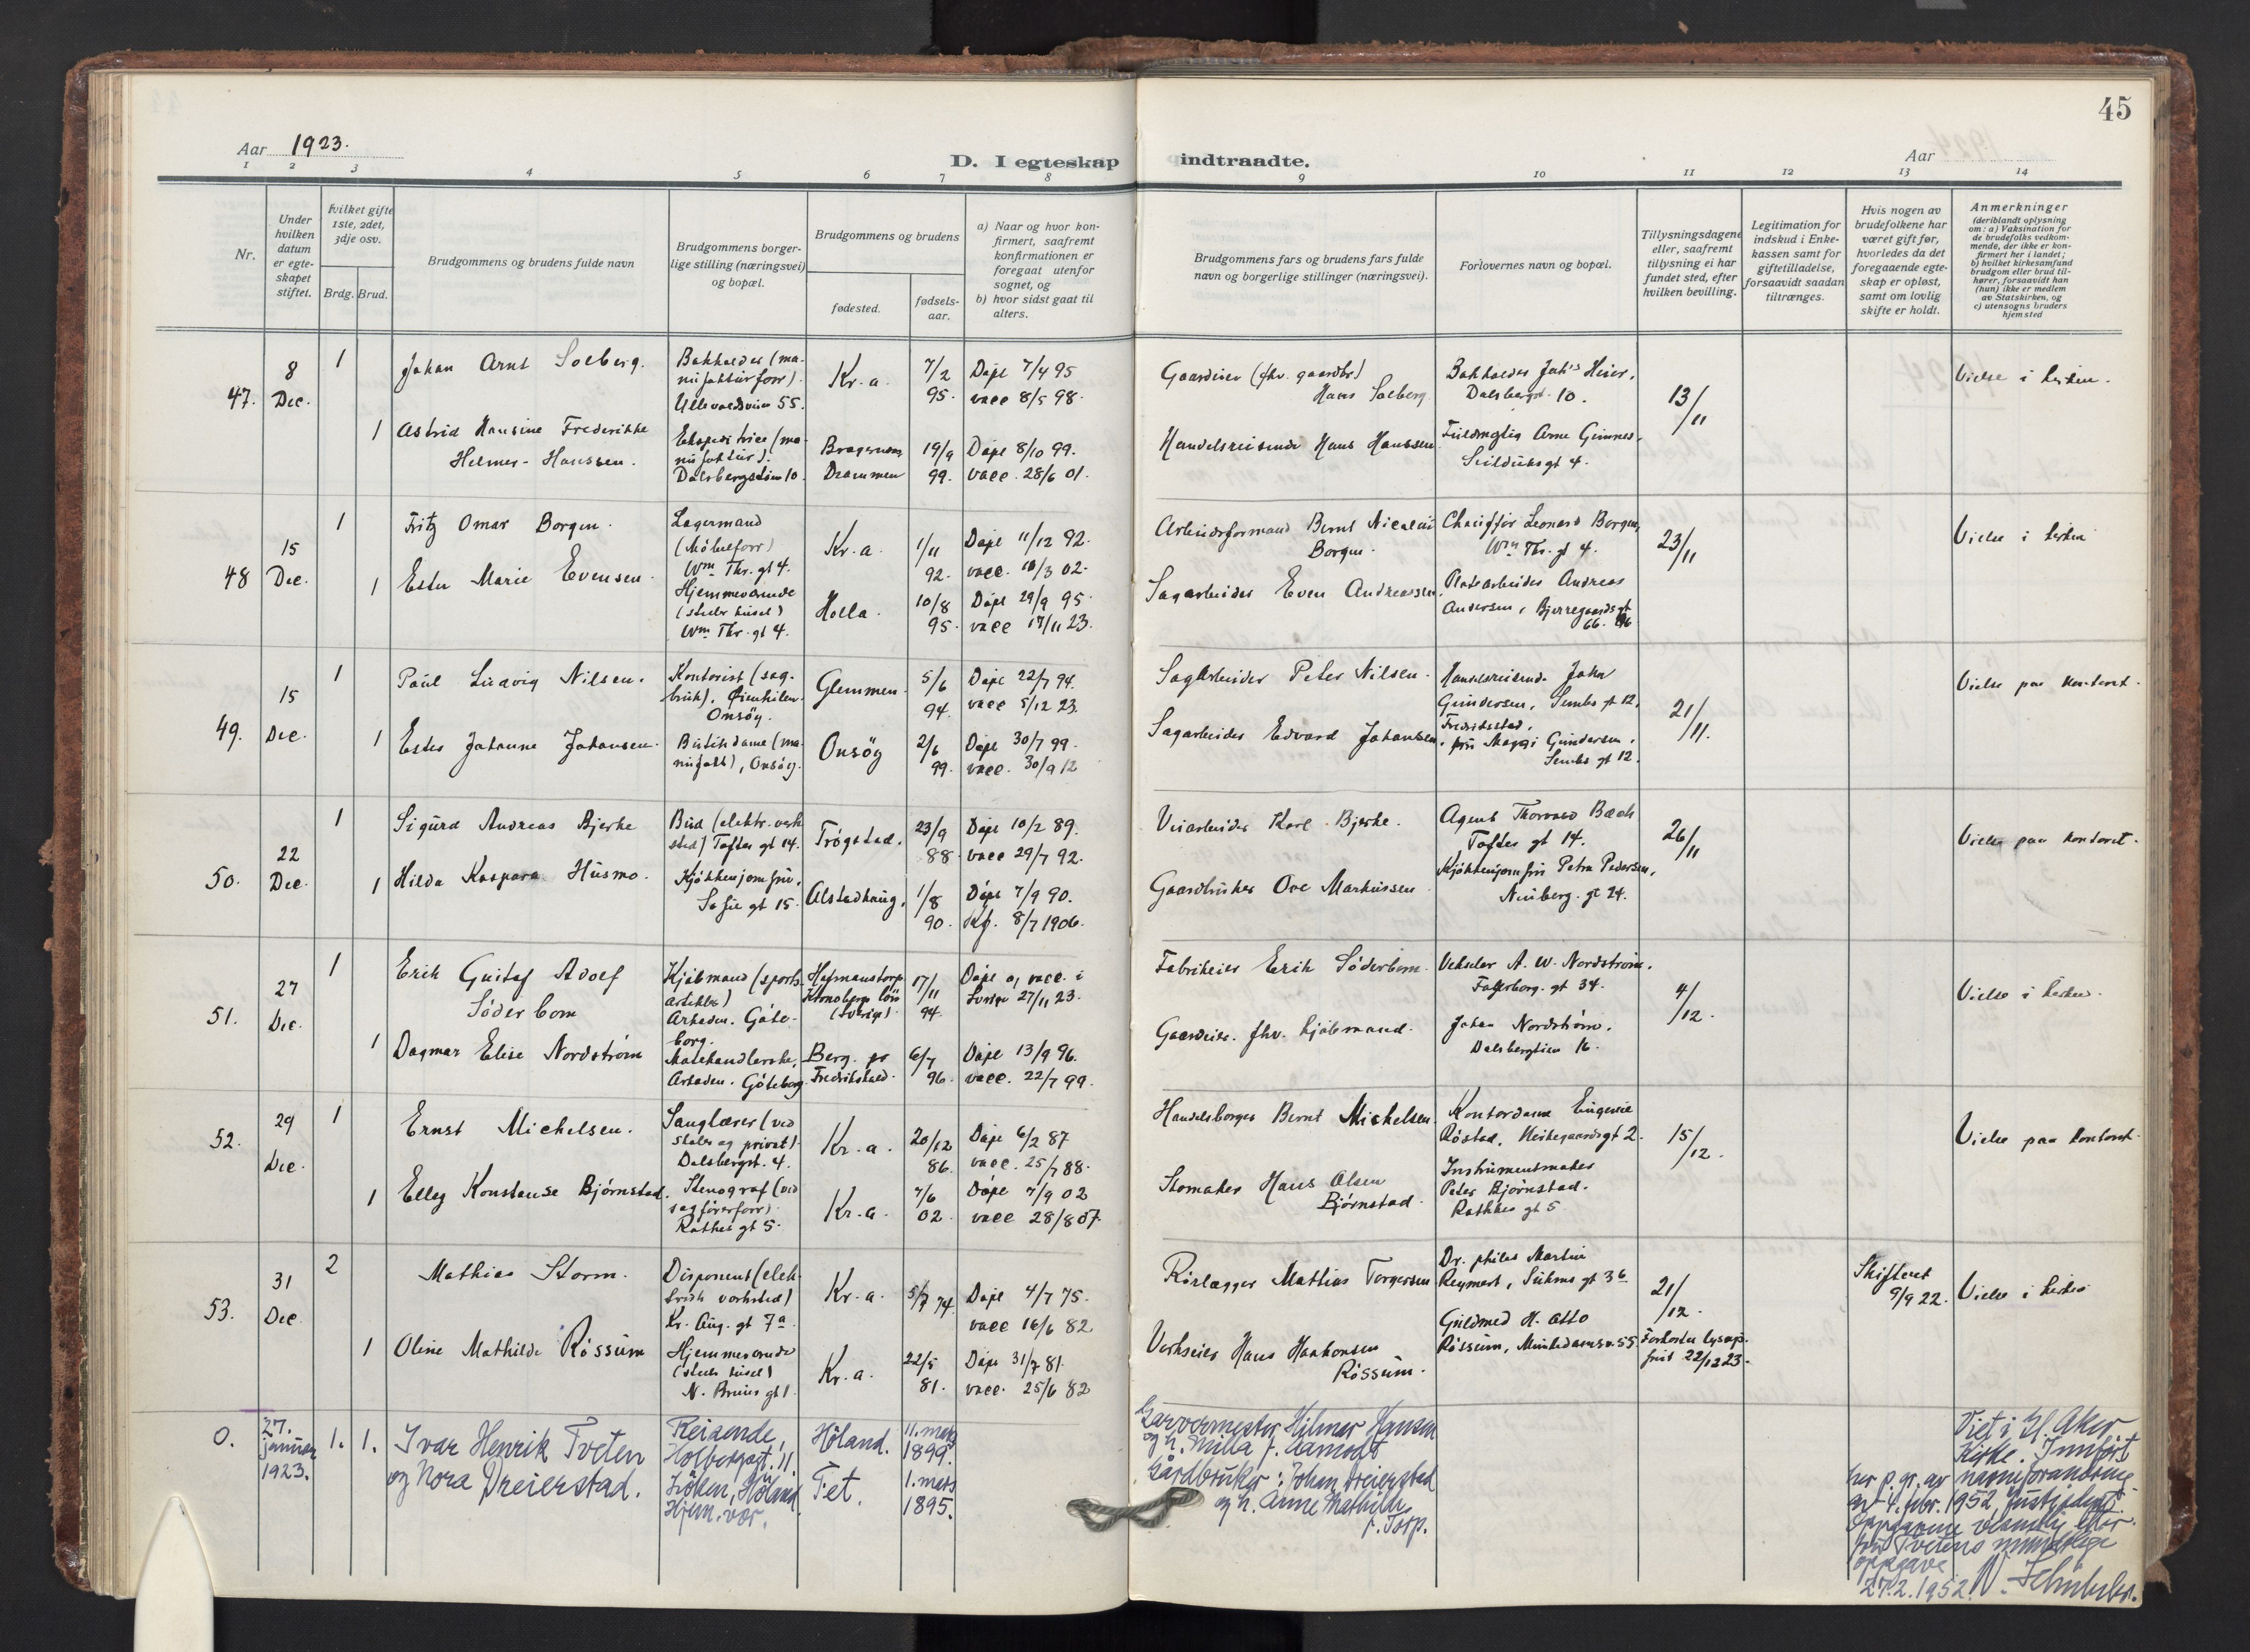 45
Aar 1923.
D. I egteskap indtraadte.
Aar
1 2 3 4 5 6 7 8 9 10 11 12 13 14
Nr.
Under
hvilken
datum
er egte-
skapet
stiftet.
hvilket gifte
1ste, 2det,
3dje osv.
Brdg. Brud.
Brudgommens og brudens fulde navn
Brudgommens borger-
lige stilling (næringsvei)
og bopæl.
Brudgommens og brudens
fødested.
fødsels-
aar.
a) Naar og hvor kon-
firmert, saafremt
konfirmationen er
foregaat utenfor
sognet, og
b) hvor sidst gaat til
alters.
Brudgommens fars og brudens fars fulde
navn og borgerlige stillinger (næringsvei).
Forlovernes navn og bopæl.
Tillysningsdagene
eller, saafremt
tillysning ei har
fundet sted, efter
hvilken bevilling.
Legitimation for
indskud i Enke-
kassen samt for
giftetilladelse,
forsaavidt saadan
tiltrænges.
Hvis nogen av
brudefolkene har
været gift før,
hvorledes da det
foregaaende egte-
skap er opløst,
samt om lovlig
skifte er holdt.
Anmerkninger
(deriblandt oplysning
om: a) Vaksination for
de brudefolks vedkom-
mende, der ikke er kon-
firmert her i landet;
b) hvilket kirkesamfund
brudgom eller brud til-
hører, forsaavidt han
(hun) ikke er medlem
av Statskirken, og
c) utensogns bruders
hjemsted
47.
8
Dec.
1
Johan Arnt Solberg.
Bokholder (ma-
nufakturforr).
Ullevoldsvein 55.
Kr.a.
7/2
95.
Døpt 7/4 95
vacc 8/5 98.
Gaardeier (fhv. gaardbr.)
Hans Solberg
Bokholder Joh's Heier,
Dalsbergst. 10.
13/11
Vielse i kirken.
1
Astrid Hansine Frederikke
Helmer-Hanssen.
Ekspeditrice (ma-
nufaktur).
Dalsbergstien 10.
Bragernes
Drammen
19/9
99.
Døpt 8/10 99.
vacc. 28/6 01.
Handelsreisende Hans Hanssen.
Fuldmægtig Arne Gimnes,
Seilduksgt 4.
48
15
Dec.
1
Fritz Omar Borgen.
Lagermand
(Møbelforr)
Wm Thr. gt 4.
Kr.a.
1/11
92.
Døpt 11/12 92.
vacc. 10/3 02.
Arbeidsformand Bernt Nicolai
Borgen.
Chauffør Leonard Borgen,
Wm Thr. gt 4.
23/11
Vielse i kirken
1
Ester Marie Evensen.
Hjemmeværende
(steller huset)
Wm Thr. gt 4.
Holla.
10/8
95.
Døpt 29/9 95.
vacc 17/11 23.
Sagarbeider Even Andreassen.
Platearbeider Andreas
Andersen, Bjerregaards gt
66.
49.
15
Dec.
1
Paul Ludvig Nilsen.
Kontorist (sag-
bruk),
Onsøy.
Glemmen.
5/6
94.
Døpt 22/7 94.
vacc 5/12 23.
Sagarbeider Peter Nilsen.
Handelsreisende John
Gundersen, Sembs gt 12,
Fredrikstad.
21/11.
Vielse paa kontoret.
1
Ester Johanne Johansen.
Butikdame (ma-
nufakt), Onsøy.
Onsöy
2/6
99.
Døpt 30/7 99.
vacc. 30/9 12
Sagarbeider Edvard Johansen.
fru Magni Gundersen,
Sembs gt 12.
50.
22
Dec.
1
Sigurd Andreas Bjerke
Bud (elektr. verk
sted) Toftes gt 14.
Trøgstad.
23/9
88.
Døpt 10/2 89.
vacc 29/7 92.
Veiarbeider Karl Bjerke.
Agent Thorvald Bach
Toftes gt 14.
26/11
Vielse paa kontoret.
1
Hilda Kaspara Husmo.
Kjøkkenjomfru,
Sofie gt 15.
Alstadhaug.
1/8
90.
Døpt 7/9 90.
Kf. 8/7 1906.
Gaardbruker Ove Markussen
Kjøkkenjomfru Petra Pedersen,
Nuiberg. gt 24.
51.
27
Dec.
1
Erik Gustaf Adolf
Söderbom
Kjøbmand (sports
artikler)
Arkaden. Göte-
borg.
Hofmanstorp
Kronobergs län
(Sverige)
17/11
94.
Døpt og vacc. i
Sverige 27/11 23.
Fabrikeier Erik Söderbom.
Veksler A. W. Nordstrøm.
Fagerborg. gt 34.
4/12.
Vielse i kirken.
1
Dagmar Elise Nordstrøm
Motehandlerske,
Arkaden. Göteborg.
Berg. pr
Fredrikshald.
6/7
96.
Døpt 13/9 96.
vacc. 22/7 99.
Gaardeier. fhv. kjøbmand.
Johan Nordstrøm.
Dalsbergstien 16.
52.
29
Dec.
1
Ernst Michelsen.
Sanglærer (ved
skoler og privat).
Dalsbergst. 4.
Kr.a.
20/12
86.
Døpt 6/2 87
vacc. 25/7 88.
Handelsborger Bernt Michelsen.
Kontordame Eugenie
Røstad, Kirkegaardsgt 2.
15/12.
Vielse paa kontoret.
1
Elley Konstanse Bjørnstad.
Stenograf (ved
sagførerforr)
Rathkes gt 5.
Kr.a.
7/6
02.
Døpt 7/9 02
vacc 28/8 07.
Skomaker Hans Olsen
Bjørnstad.
Instrumentmaker
Peter Bjørnstad.
Rathkes gt 5
53.
31
Dec.
2
Mathias Storm.
Disponent (elek-
trisk verksted)
Kr. Aug. gt 7a.
Kr.a.
5/7 74.
Døpt 4/7 75.
vacc 16/6 82.
Rørlægger Mathias Torgersen
Dr. philos Martin
Reymert, Suhms gt 36
21/12.
Skifteret
9/9 22.
Vielse i kirken
1
Oline Mathilde Røssum
Hjemmeværende
(steller huset)
N. Bruns gt 1.
Kr.a.
22/5
81.
Døpt 31/7 81.
vacc. 25/6 82
Verkseier Hans Haakonsen
Røssum.
Guldmed H. Otto
Røssum, Munkedamsv. 55.
Forkortet lysnings-
frist 22/12 23.
0.
27.
januar
1923.
1. 1.
Ivar Henrik Tveten
og Nora Dreierstad.
Reisende,
Holbergsgt. 11.
Löken, Höland.
Hjem. vær.
Höland.
Fet.
11. mars
1899.
1. mars
1895.
Garvermester Hilmar Hansen
og h. Milla f. Aamodt
Gårdbruker: Johan Dreierstad
og h. Anne Mathilde
f. Torp.
Viet i V. Aker
Kirke. Innført
her p. gr. av navneforandring
av 4. febr. 1952, Justisdept.
Oppgavene vesentlig etter
fru Tvetens muntlige
oppgave
27.2.1952.